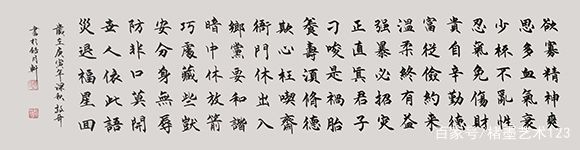 欲寡精神爽
思多血氣衰
少杯不亂性
忍氣免傷財
貴自辛勤德
富從儉約來
溫柔終有益
强暴必招災
正直真君子
刁唆是禍胎
養壽須脩德
欺心枉喫齋
衙門休出入
鄉黨要和諧
暗中休放箭
巧處藏些獃
安分身無辱
防非口莫開
世人依此語
災退福星回
歲在庚寅年深秋
書於竹月軒
百家号/楮墨艺术123